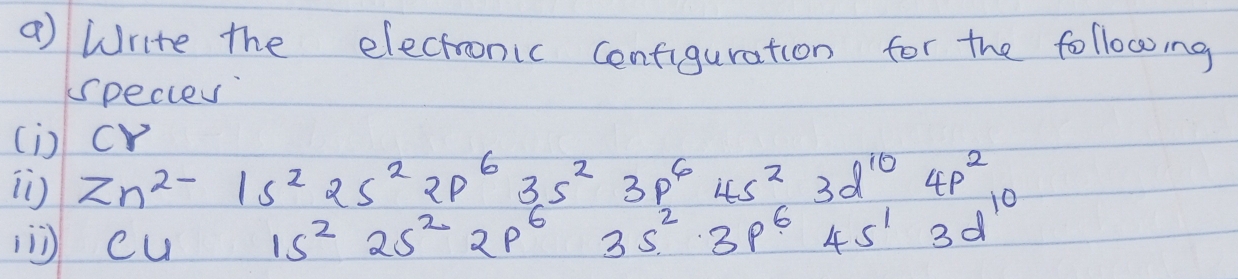 a) Write the electronic Configuration for the following
species
(i) Cr
ii) Zn²⁻ 1s² 2s² 2p⁶ 3s² 3p⁶ 4s² 3d¹⁰ 4p²
iii) Cu 1s² 2s² 2p⁶ 3s² 3p⁶ 4s¹ 3d¹⁰